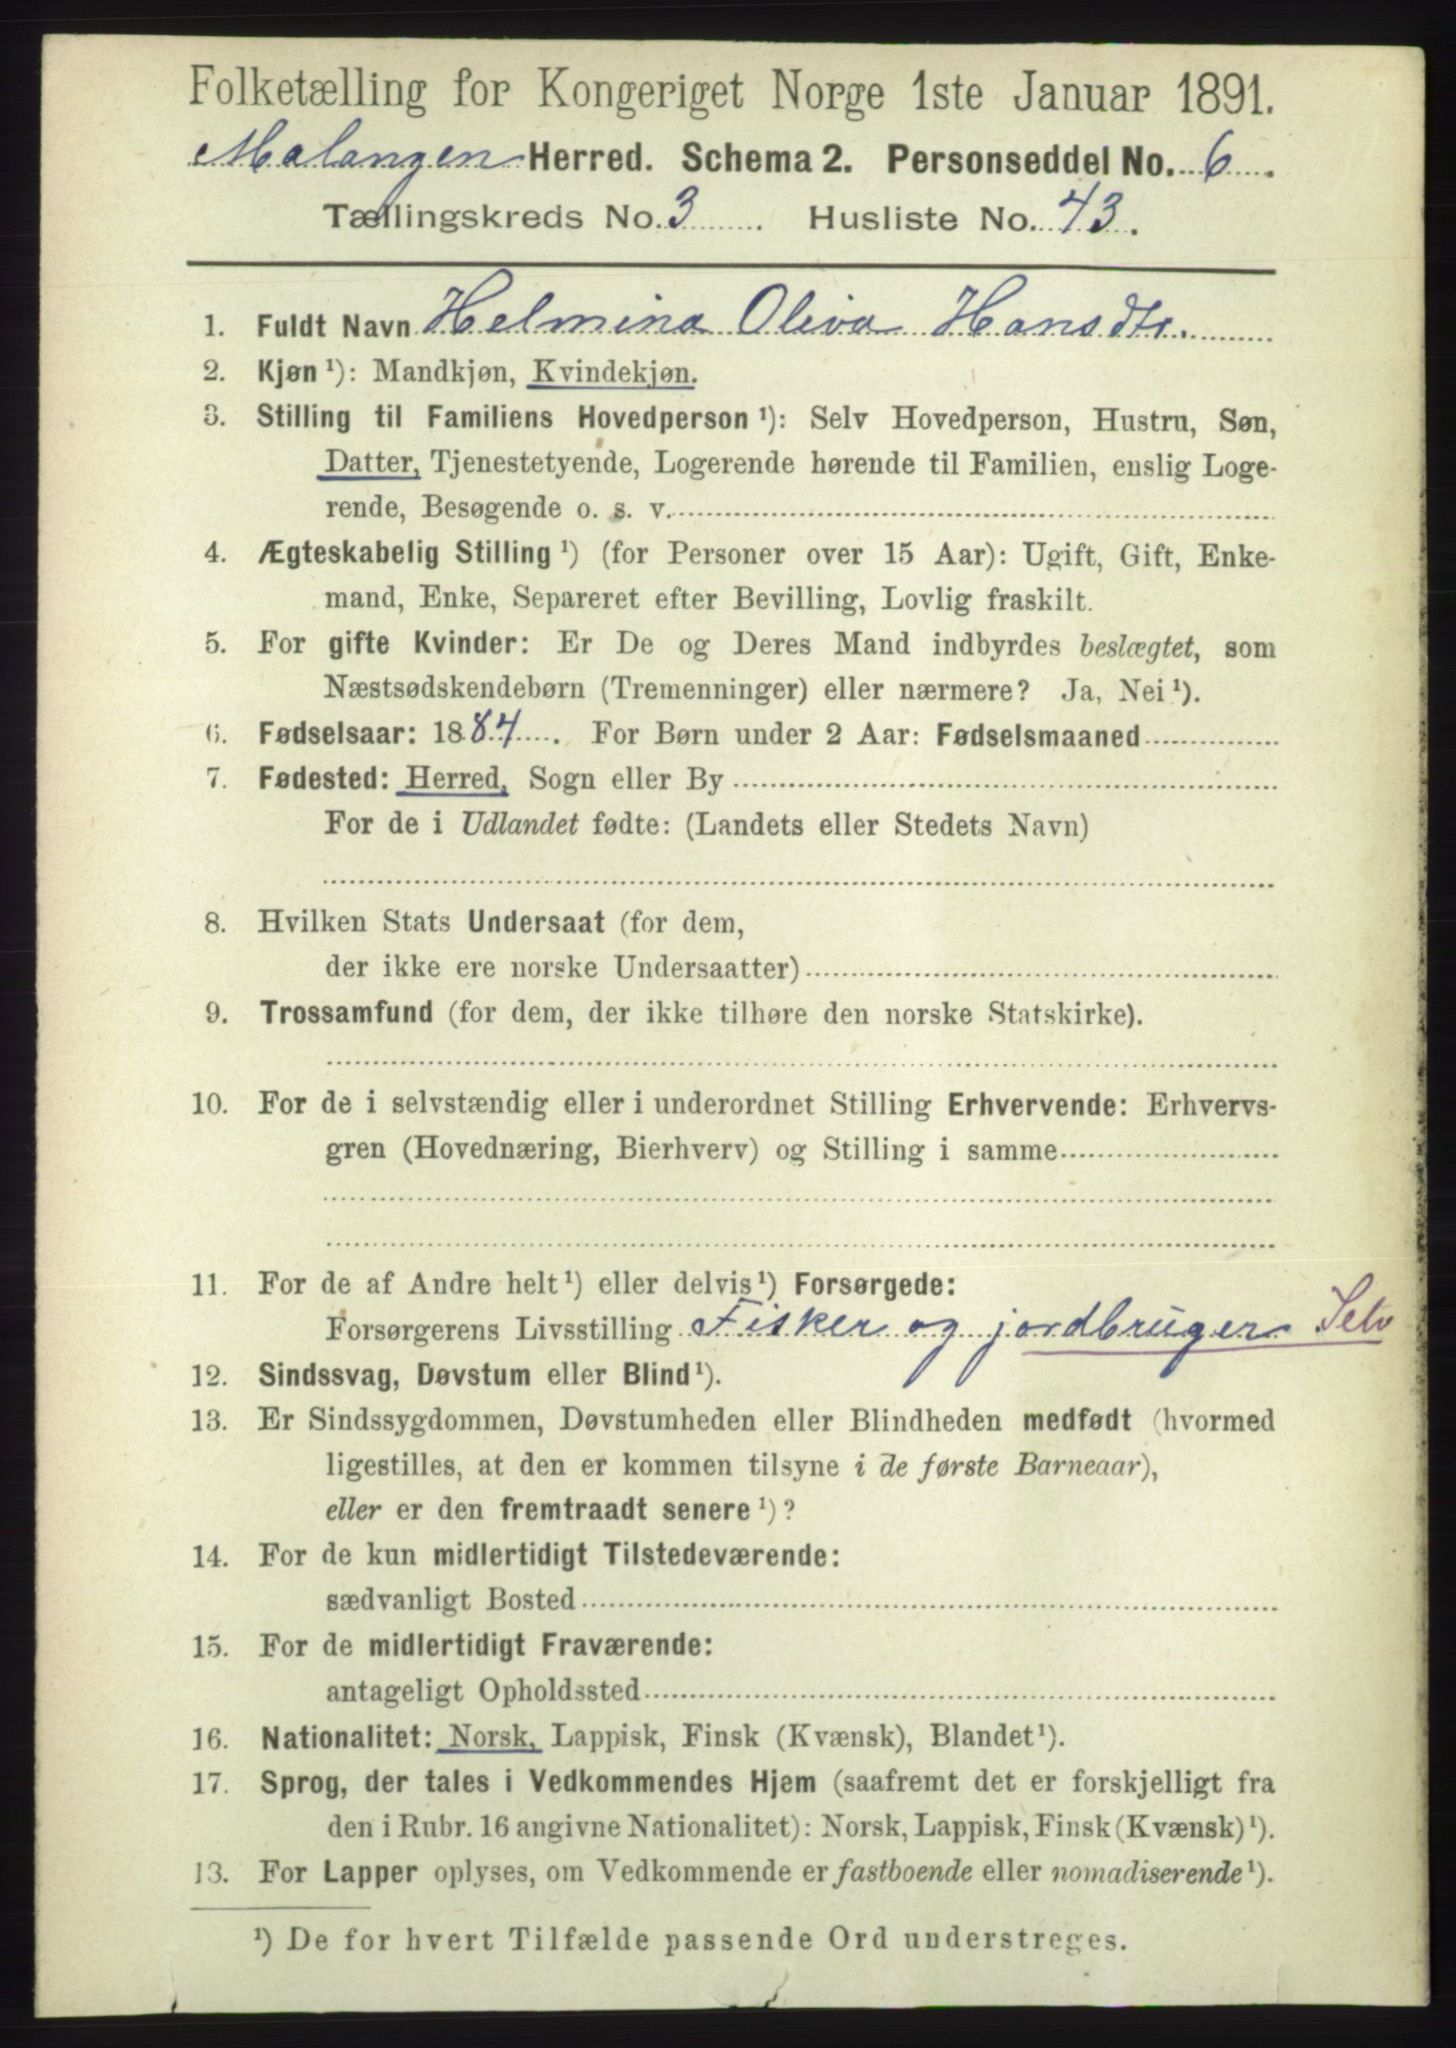 Folketælling for Kongeriget Norge 1ste Januar 1891.
Malangen Herred. Schema 2. Personseddel No. 6.
Tællingskreds No. 3. Husliste No. 43.
1. Fuldt Navn Helmina Oliva Hansdtr.
2. Kjøn ¹): Mandkjøn, Kvindekjøn.
3. Stilling til Familiens Hovedperson ¹): Selv Hovedperson, Hustru, Søn,
Datter, Tjenestetyende, Logerende hørende til Familien, enslig Loge-
rende, Besøgende o. s. v.
4. Ægteskabelig Stilling ¹) (for Personer over 15 Aar): Ugift, Gift, Enke-
mand, Enke, Separeret efter Bevilling, Lovlig fraskilt.
5. For gifte Kvinder: Er De og Deres Mand indbyrdes beslægtet, som
Næstsødskendebørn (Tremenninger) eller nærmere? Ja, Nei ¹).
6. Fødselsaar: 1884. For Børn under 2 Aar: Fødselsmaaned
7. Fødested: Herred, Sogn eller By
For de i Udlandet fødte: (Landets eller Stedets Navn)
8. Hvilken Stats Undersaat (for dem,
der ikke ere norske Undersaatter)
9. Trossamfund (for dem, der ikke tilhøre den norske Statskirke).
10. For de i selvstændig eller i underordnet Stilling Erhvervende: Erhvervs-
gren (Hovednæring, Bierhverv) og Stilling i samme
11. For de af Andre helt ¹) eller delvis ¹) Forsørgede:
Forsørgerens Livsstilling Fisker og jordbruger Selv
12. Sindssvag, Døvstum eller Blind ¹).
13. Er Sindssygdommen, Døvstumheden eller Blindheden medfødt (hvormed
ligestilles, at den er kommen tilsyne i de første Barneaar),
eller er den fremtraadt senere ¹)?
14. For de kun midlertidigt Tilstedeværende:
sædvanligt Bosted
15. For de midlertidigt Fraværende:
antageligt Opholdssted
16. Nationalitet: Norsk, Lappisk, Finsk (Kvænsk), Blandet ¹).
17. Sprog, der tales i Vedkommendes Hjem (saafremt det er forskjelligt fra
den i Rubr. 16 angivne Nationalitet): Norsk, Lappisk, Finsk (Kvænsk) ¹).
13. For Lapper oplyses, om Vedkommende er fastboende eller nomadiserende ¹).
¹) De for hvert Tilfælde passende Ord understreges.